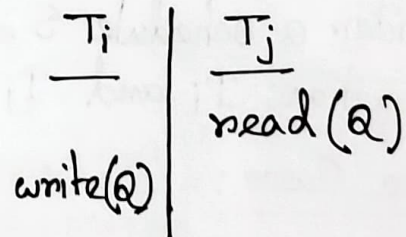 Ti Tj
read (Q)
write(Q)